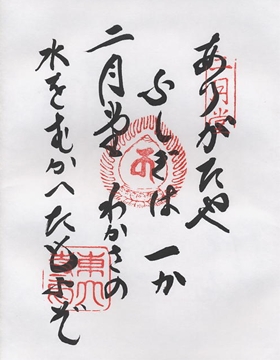 ありがたや
ふしぎは 一か
二月堂 わかさの
水をむかへたもふぞ
二月堂
東大寺